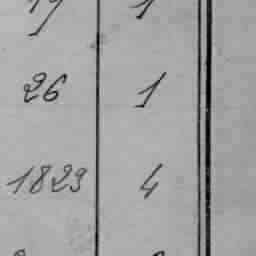 19 1
26 1
1823 4